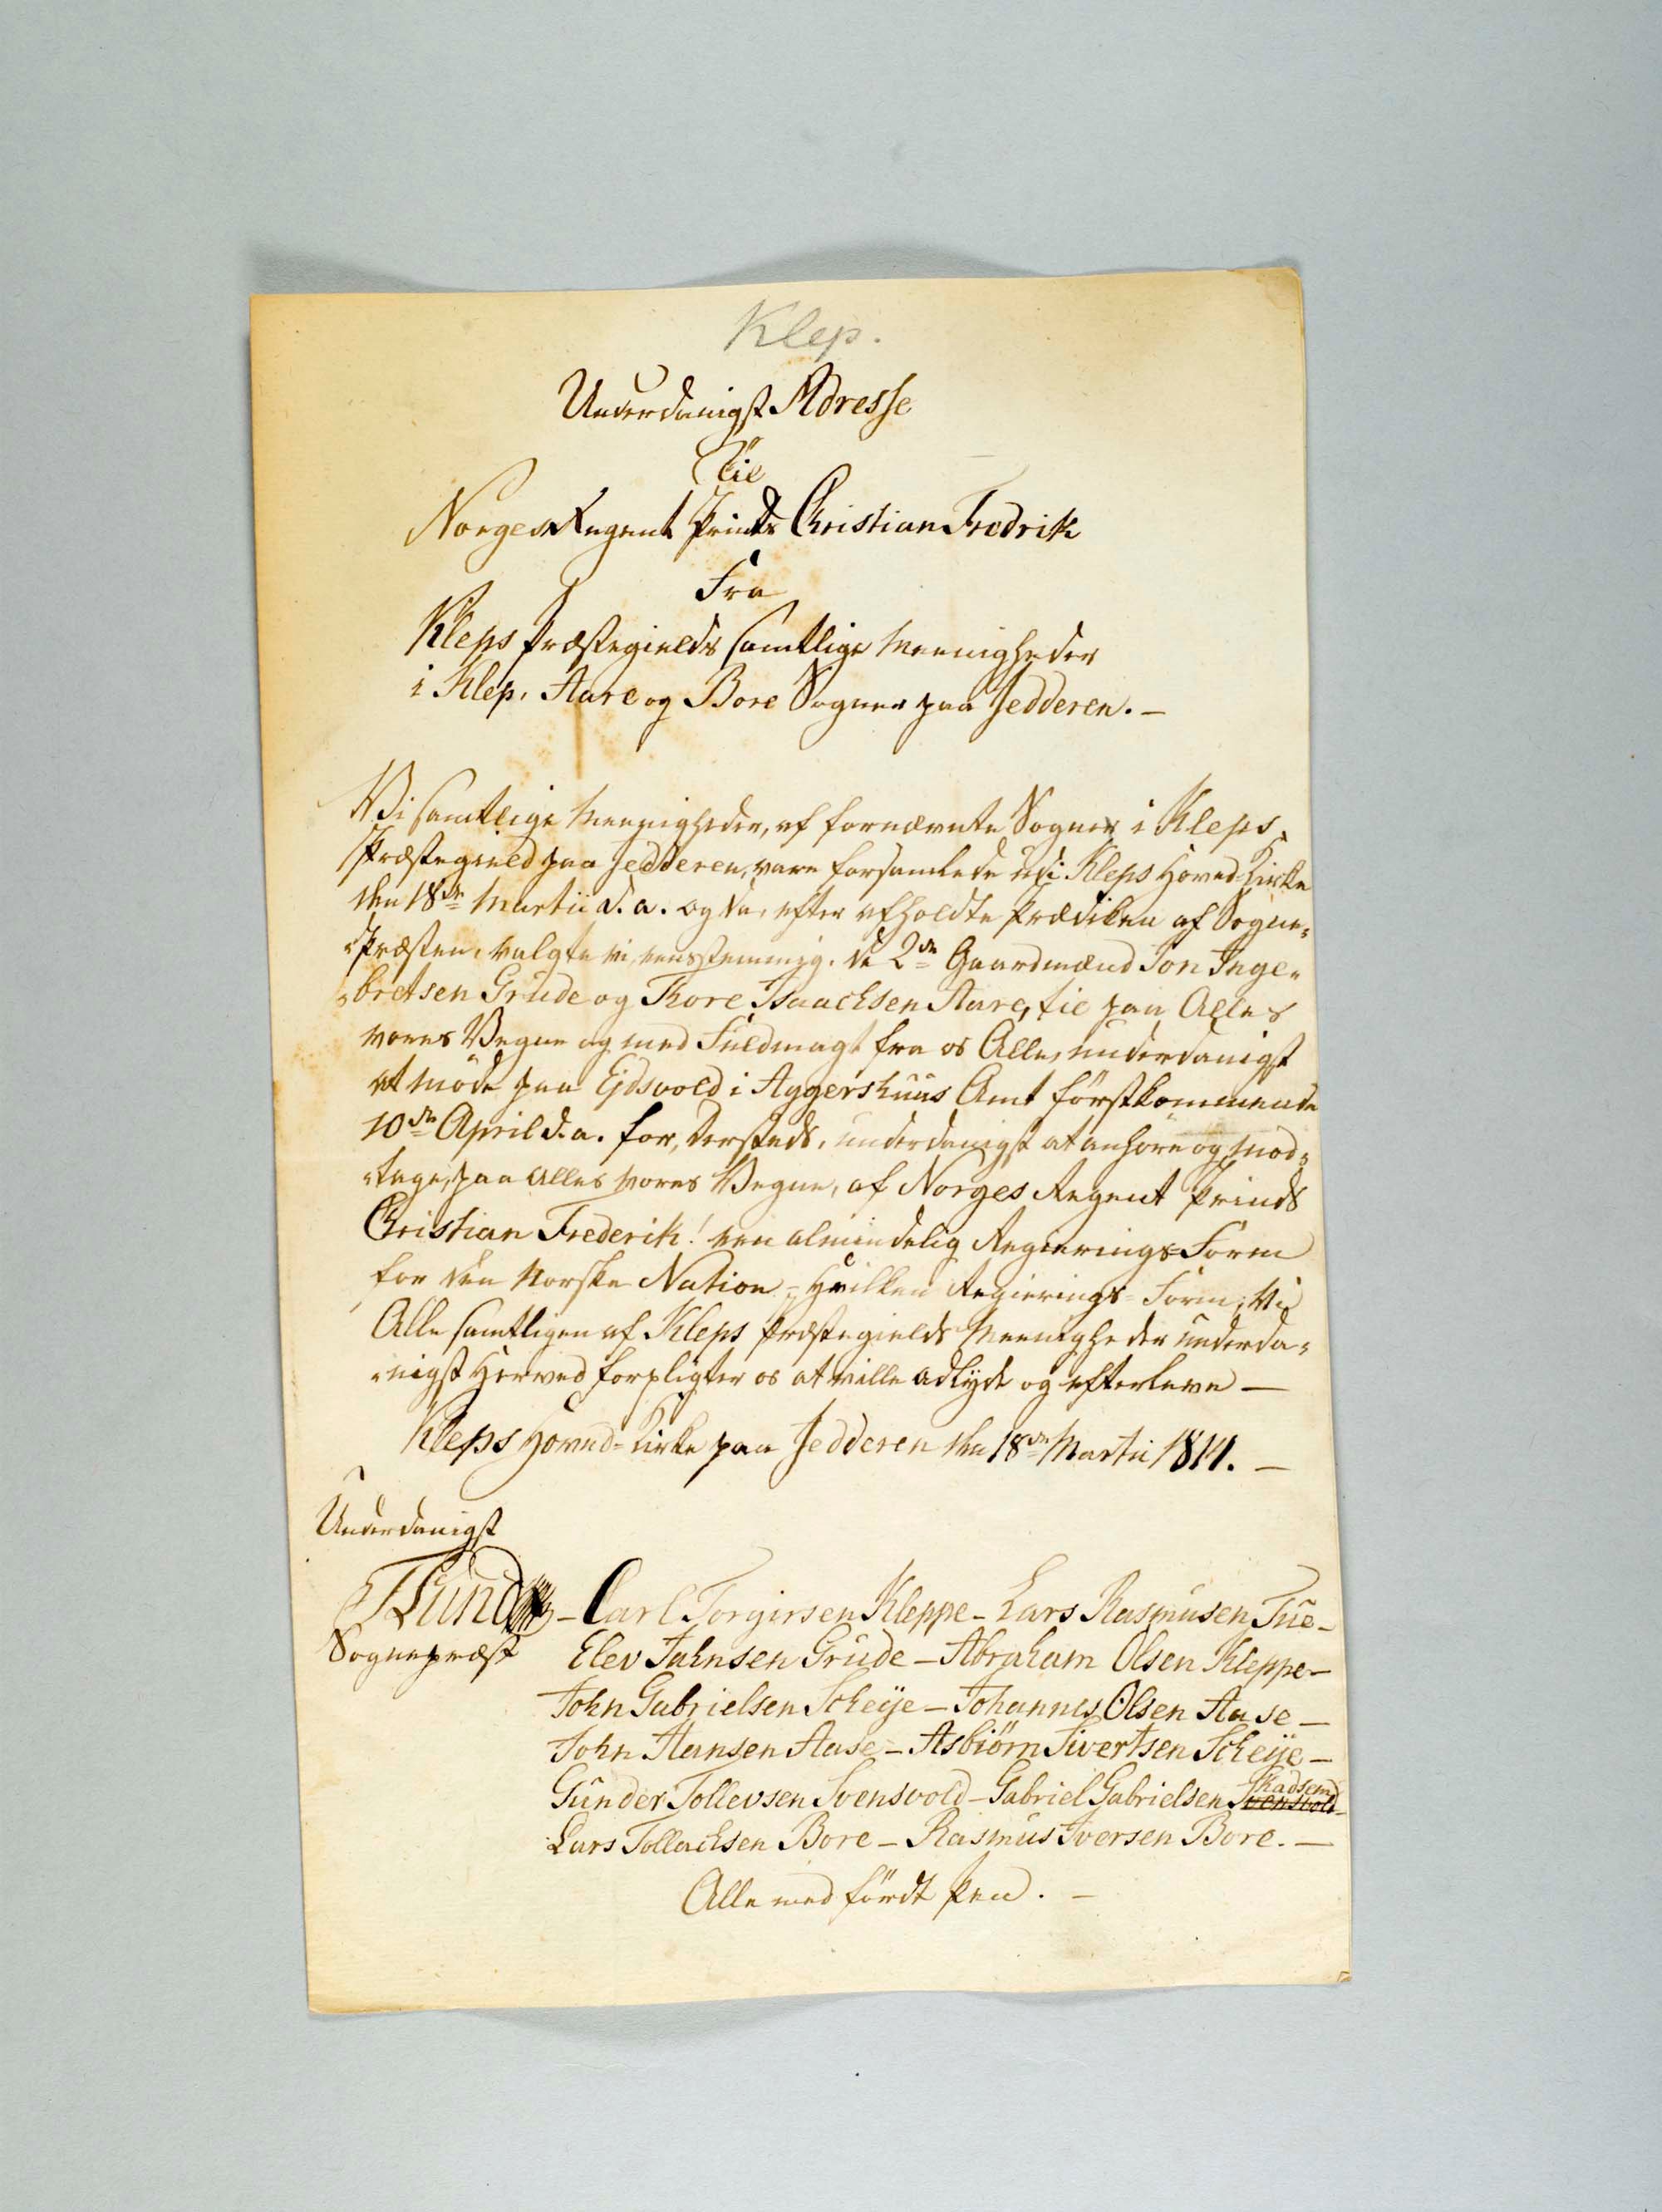 Klep.
Underdanigst Adresse
Til
Norges Regent Prinds Christian Fredrik
Fra
Kleps Præstegields samtlige Meenigheder
i Klep, Aare og Bore Sogner paa Jedderen. —
Vi samtlige Meenigheder, af fornævnte Sogner i Kleps
Præstegield paa Jedderen, vare forsamlede udi Kleps Hoved-Kirke
den 18de Martii d. a. og da, efter afholdte Prædiken af Sogne-
-Præsten, valgte vi, eensstemmig, de 2de Gaardmænd Jon Inge-
-bretsen Grude og Thore Isaachsen Aare, til paa Alles
vores Vegne og med Fuldmagt fra os Alle, underdanigst
at møde paa Ejdsvold i Aggershuus Amt førstkommende
10de April d. a. for, dersteds, underdanigst at anhøre og mod-
-tage, paa Alles vores Vegne, af Norges Regent Prinds
Christian Frederik! een almindelig Regierings-Form
for den Norske Nation - Hvilken Regierings-Form, Vi
Alle samtligen af Kleps Præstegields Meenigheder underda-
-nigst Herved forpligter os at ville adlyde og efterleve —
Kleps Hoved-Kirke paa Jedderen den 18de Martii 1814. —
Underdanigst
Lund — Carl Torgirsen Kleppe — Lars Rasmusen Tue —
Sognepræst Elev Jahnsen Grude — Abraham Olsen Kleppe —
John Gabrielsen Scheije — Johannes Olsen Aase —
John Hansen Aase — Asbiörn Sivertsen Scheije —
Gunder Tollevsen Svensvold — Gabriel Gabrielsen Svensvold Kadsem —
Lars Tollachsen Bore — Rasmus Iversen Bore. —
Alle med fördt Pen. —